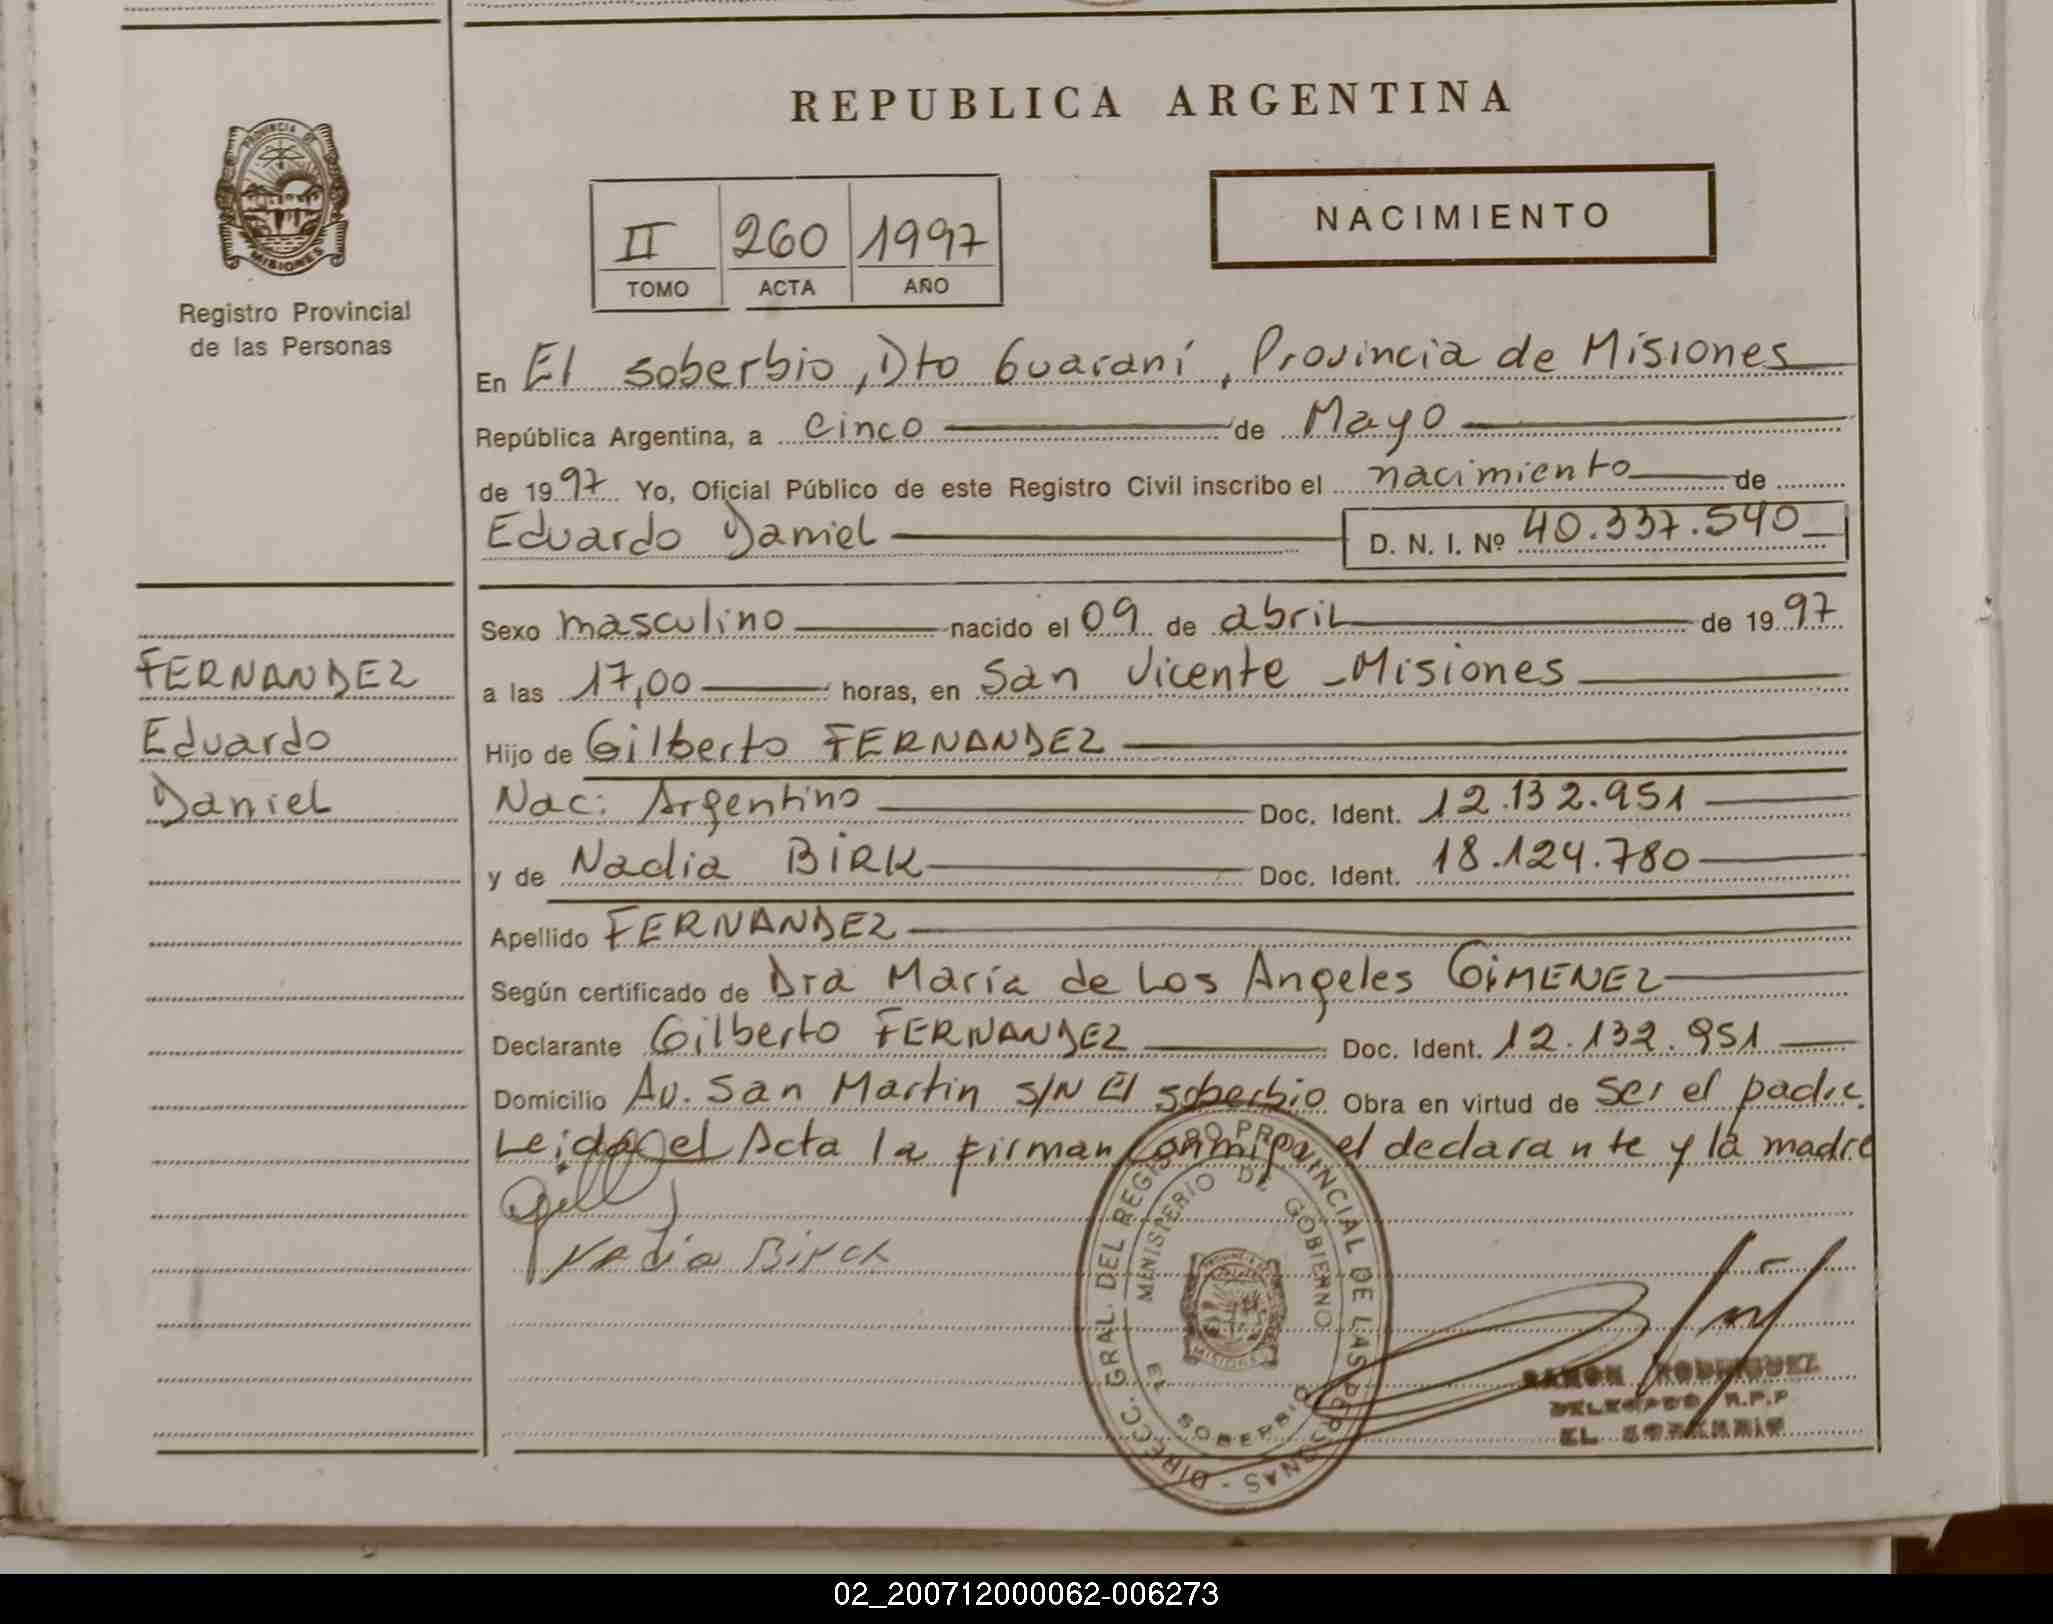 REPUBLICA ARGENTINA
PROVINCIA DE
MISIONES
Registro Provincial
de las Personas
II 260 1997
TOMO ACTA AÑO
NACIMIENTO
En El soberbio, Dto Guaraní, Provincia de Misiones
República Argentina, a cinco de Mayo
de 1997 Yo, Oficial Público de este Registro Civil inscribo el nacimiento de
Eduardo Daniel D. N. I. Nº 40.337.540
Sexo masculino nacido el 09 de abril de 1997
FERNANDEZ
a las 17,00 horas, en San Vicente - Misiones
Eduardo
Hijo de Gilberto FERNANDEZ
Daniel
Nac: Argentino Doc. Ident. 12.132.951
y de Nadia BIRK Doc. Ident. 18.124.780
Apellido FERNANDEZ
Según certificado de Dra María de Los Angeles GIMENEZ
Declarante Gilberto FERNANDEZ Doc. Ident. 12.132.951
Domicilio Av. San Martin S/N El soberbio Obra en virtud de ser el padre.
Leida el Acta la firman conmigo el declarante y la madre
Nadia Birck
DIRECC. GRAL. DEL REGISTRO PROVINCIAL DE LAS PERSONAS -
MINISTERIO DE GOBIERNO
EL SOBERBIO
MISIONES
RAMON RODRIGUEZ
DELEGADO R.P.P
EL SOBERBIO
02_200712000062-006273